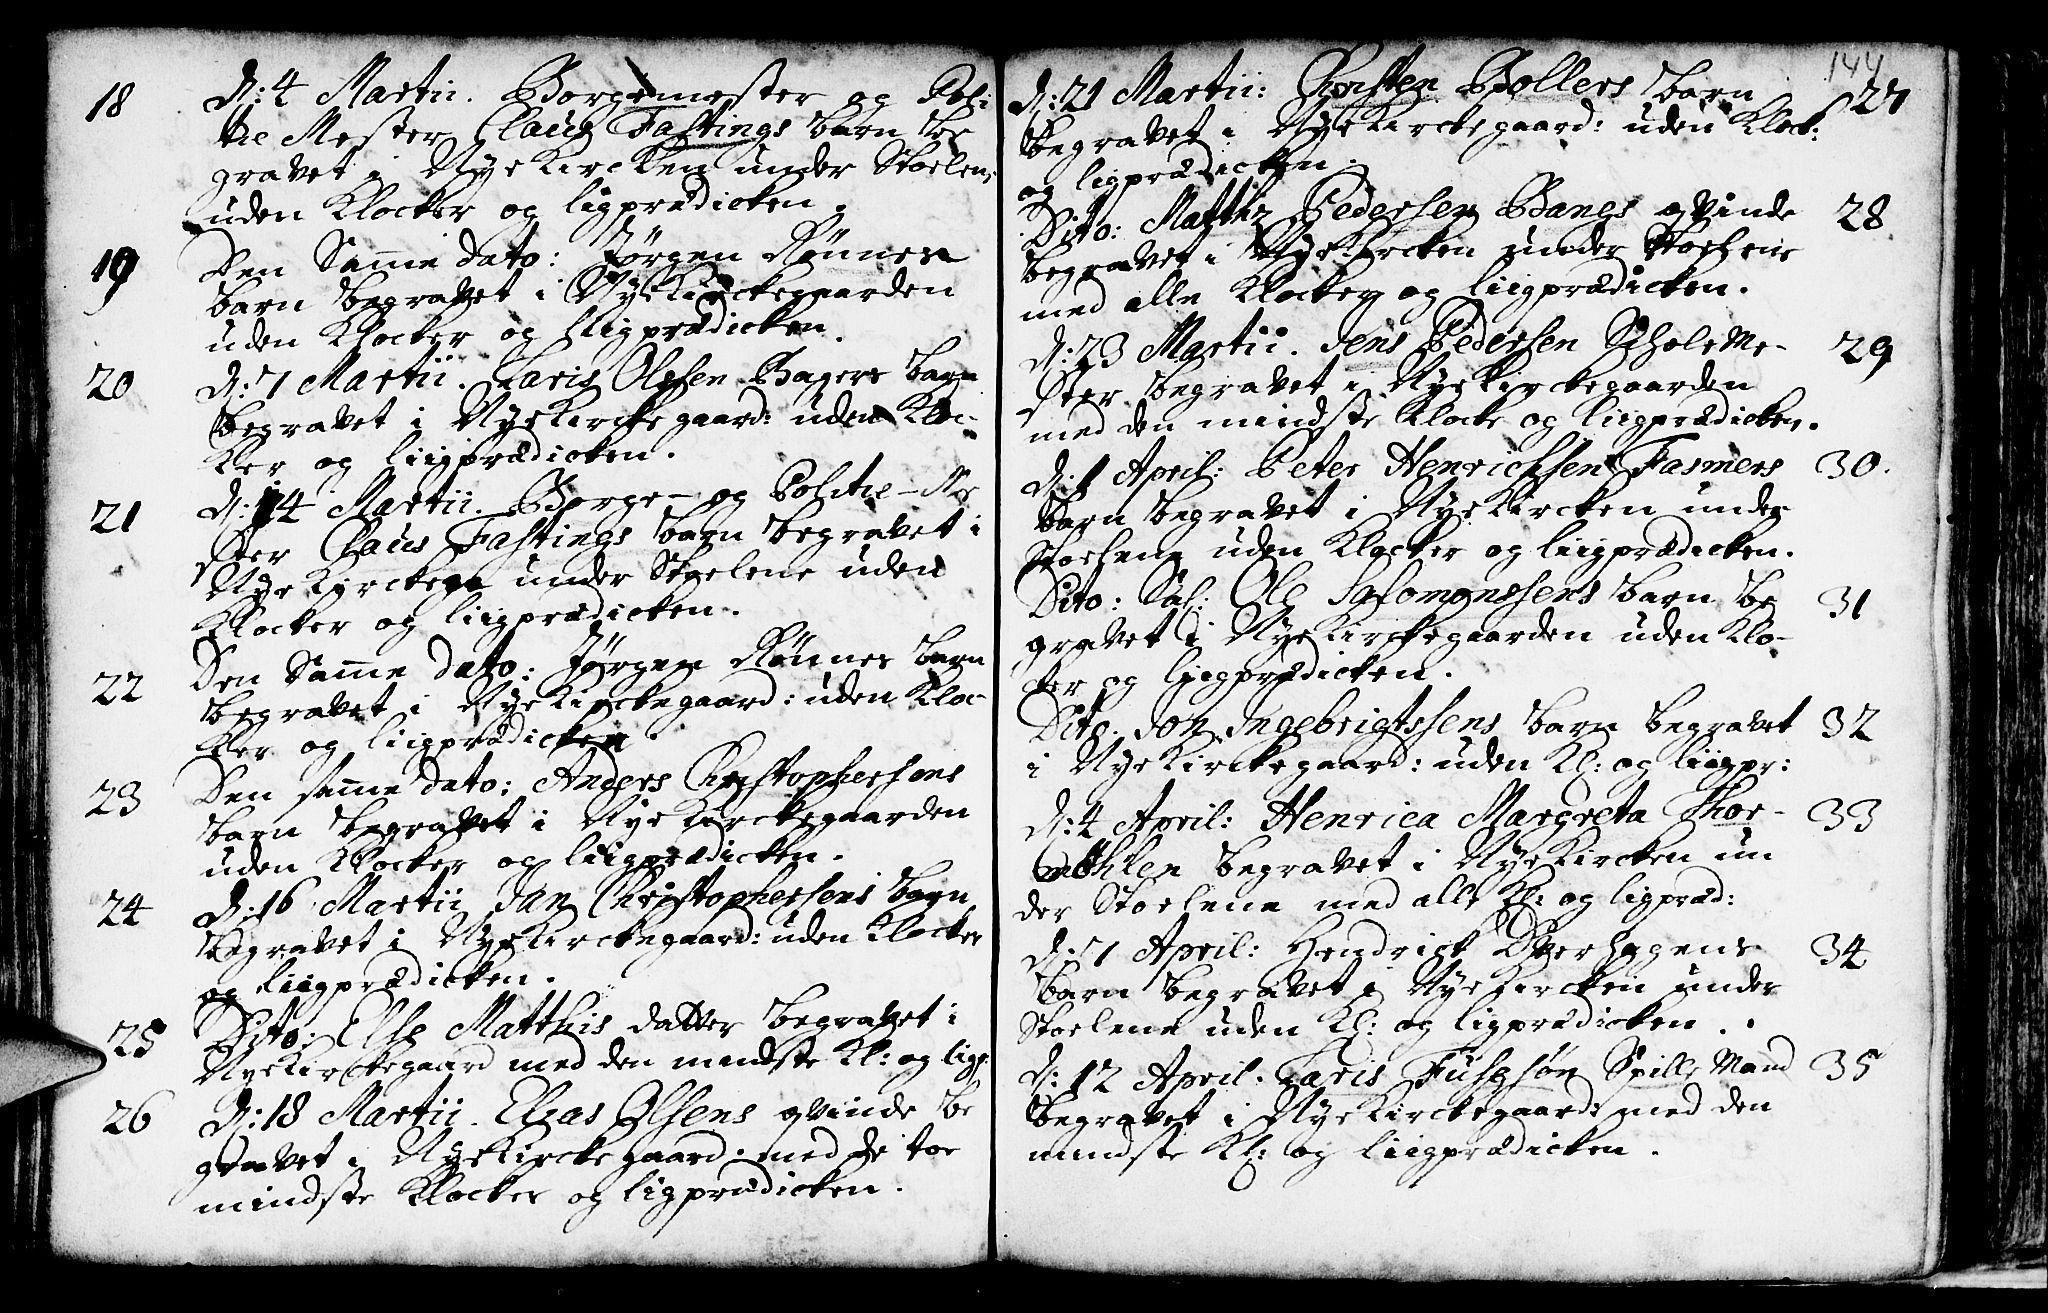 18 d: 4 Martii. Borgemester og Poli-
tie Mester Claus Fastings barn be
gravet i Nye Kircken under Stoelene
uden Klocker og ligprædicken.
19 Den Sam̄e dato: Jørgen Rønnes
barn begravet i Nye Kirckegaarden
uden Klocker og liigprædicken.
20 d: 7 Martii. Laris Olssen Bagers barn
begravet i Nye Kircke gaard: uden Kloc-
ker og liigprædicken.
21 d: 14 Martii. Borge- og Politie-Me
ster Claus Fastings barn begravet i
Nye Kircken under Stoelene uden
Klocker og liigprædicken.
22 Den Sam̄e dato: Jørgen Rønnes barn
begravet i Nye Kirckegaard: uden Kloc-
ker og liigprædicken.
23 Den sam̄e dato: Anders Christophersens
barn begravet i Nye Kirckegaarden
uden Klocker og liigprædicken.
24 d: 16 Martii Jan Christophersens barn
begravet i Nye Kirckegaard: uden Klocker
og liigprædicken.
25 Dito: Else Matthis datter begravet i
Nye Kirckegaard med den mindste Kl: og ligp:
26 d: 18 Martii. Elias Olsens qvinde be
gravet i Nye Kircke gaard: med de toe
mindste Klocker og ligprædicken.
144
d: 21 Martii: Christen Bollers barn 27
begravet i Nye Kirckegaard: uden Klock:
og ligprædicken.
Dito: Matthis Pedersen Banes qvinde 28
begravet i Nye Kircken under Stoelene
med alle Klocker og liigprædicken.
d: 23 Martii. Jens Pedersen Schole Me- 29
ster begravet i Nye Kirckegaarden
med den mindste Klocke og liigprædicken.
d: 1 April: Peter Henrichsen Fasmers 30.
barn begravet i Nye Kircken under
Stoelene uden Klocker og liigprædicken.
Dito: Sal: Ole Salomonssens barn be 31
gravet i Nye Kirckegaarden uden Klo-
cker og liigprædicken.
Dito. Jon Ingebrigtssens barn begravet 32
i Nye Kirckegaard: uden Kl: og liigpr:
d: 4 April: Henrica Margreta Thor- 33
möhlen begravet i Nye Kircken un
der Stoelene med alle Kl: og ligpræd:
d: 7 April: Hendrick Overhagens 34
barn begravet i Nye Kircken under
Stoelene uden Kl: og ligprædicken.
d: 12 April. Laris Fusesøn Spille Mand 35
begravet i Nye Kirckegaard: med den
mindste Kl: og liigprædicken.